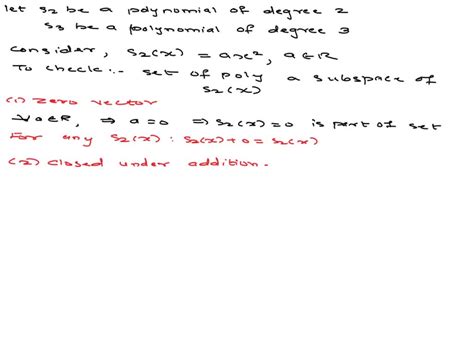 let S2 be a polynomial of degree 2
S3 be a polynomial of degree 3
consider, S2(x) = ax², a∈R
To check:- set of poly a subspace of
S2(x)
(1) zero vector
∀ a∈R, ⇒ a=0 ⇒ S2(x)=0 is part of set
For any S2(x) : S2(x)+0 = S2(x)
(2) closed under addition.